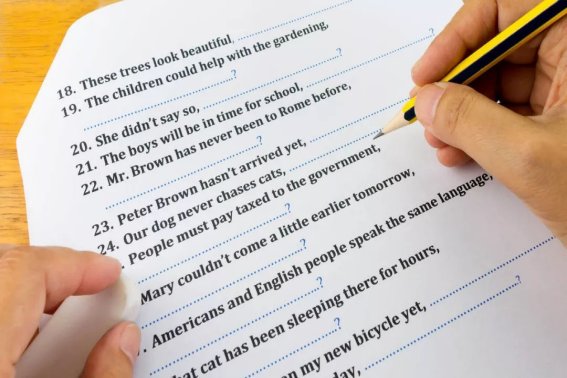 18. These trees look beautiful, ?
19. The children could help with the gardening,
?
20. She didn't say so, ?
21. The boys will be in time for school, ?
22. Mr. Brown has never been to Rome before,
?
23. Peter Brown hasn't arrived yet,
24. Our dog never chases cats,
People must pay taxed to the government,
?
Mary couldn't come a little earlier tomorrow,
?
. Americans and English people speak the same language,
?
cat has been sleeping there for hours,
?
my new bicycle yet, ?